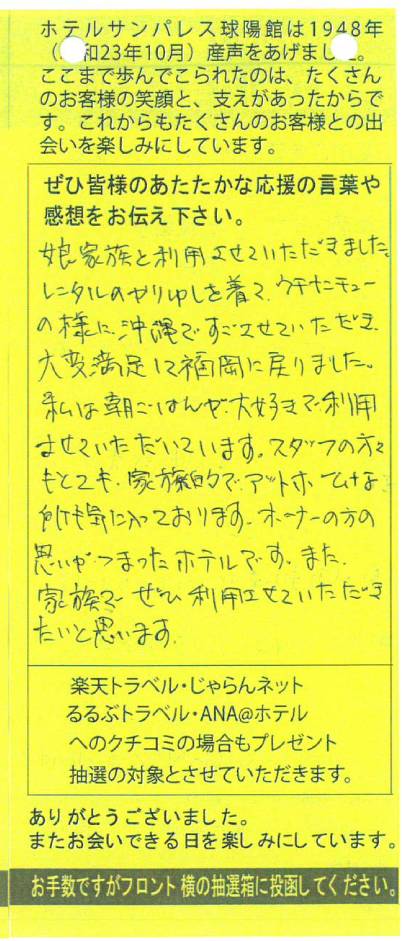 ホテルサンパレス球陽館は1948年
（和23年10月）産声をあげました。
ここまで歩んでこられたのは、たくさん
のお客様の笑顔と、支えがあったからで
す。これからもたくさんのお客様との出
会いを楽しみにしています。
ぜひ皆様のあたたかな応援の言葉や
感想をお伝え下さい。
娘家族と利用させていただきました。
レンタルのかりゆしを着て、ウチナンチュー
の様に、沖縄ですごさせていただき、
大変満足して福岡に戻りました。
私は朝ごはんが大好きで利用
させていただいています。スタッフの方々
もとても、家族的で、アットホームな
所も気に入っております。オーナーの方の
思いがつまったホテルです。また、
家族で ぜひ利用させていただき
たいと思います。
楽天トラベル・じゃらんネット
るるぶトラベル・ANA@ホテル
へのクチコミの場合もプレゼント
抽選の対象とさせていただきます。
ありがとうございました。
またお会いできる日を楽しみにしています。
お手数ですがフロント横の抽選箱に投函してください。